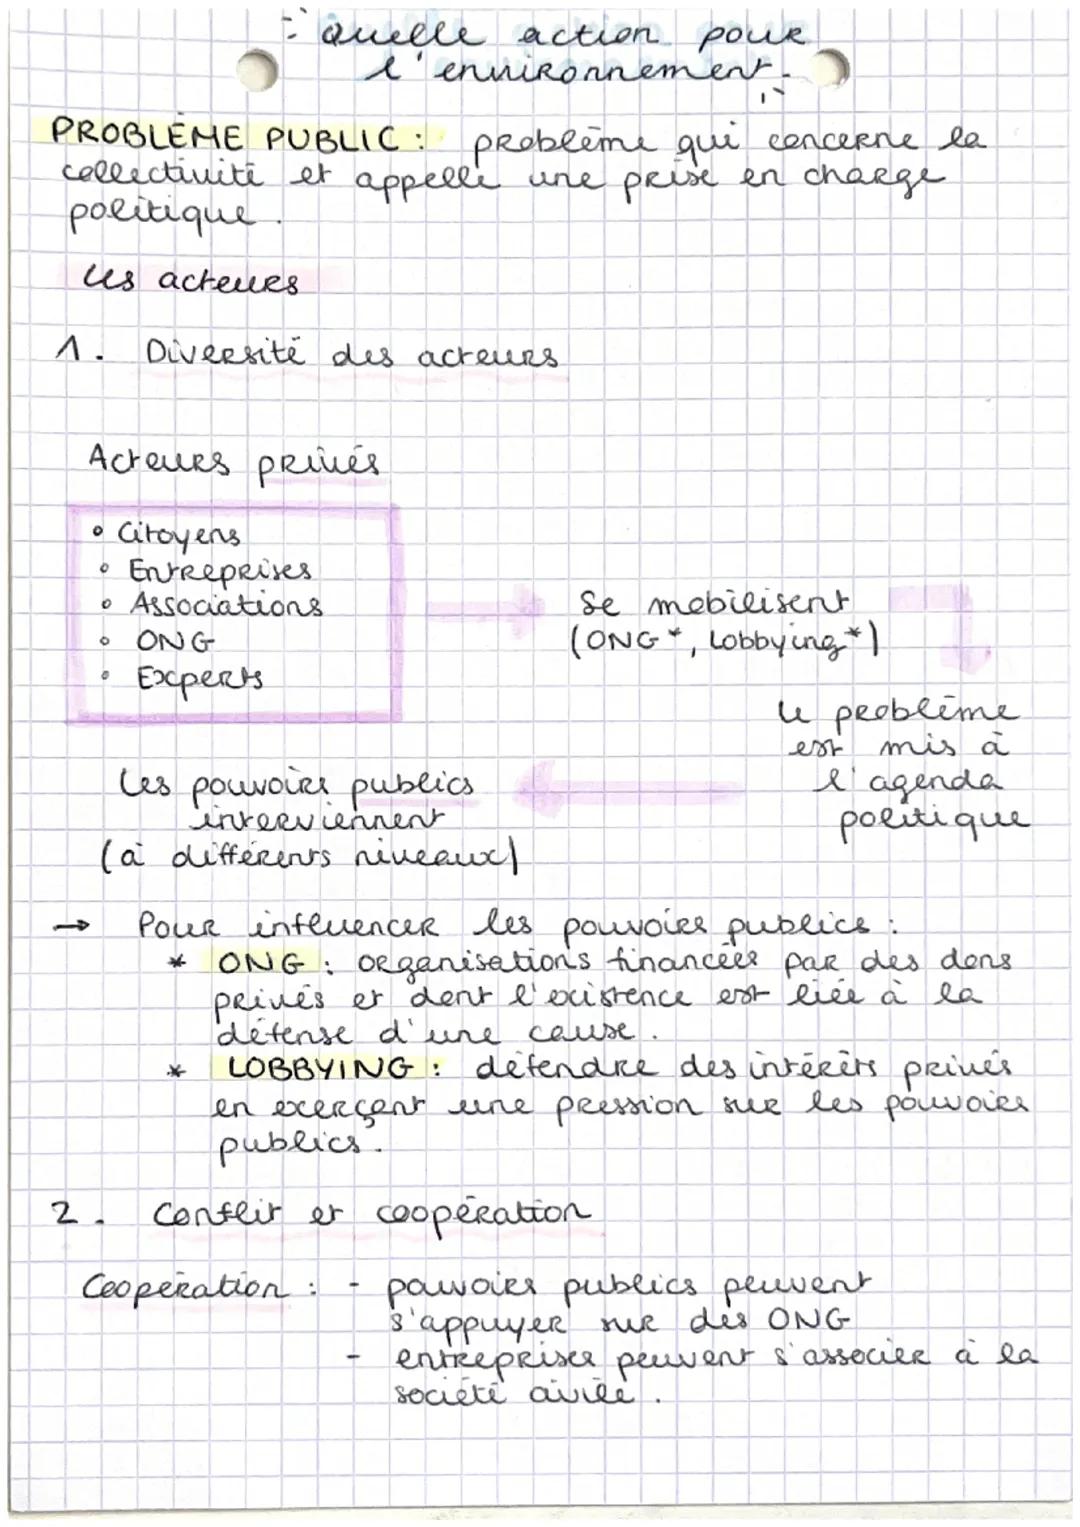 Quelle action pour
l'environnement
PROBLÈME PUBLIC : problème qui concerne la
collectivité et appelle une prise en charge
politique.
Les acteurs
1. Diversité des acteurs
Acteurs privés
• Citoyens
• Entreprises
• Associations
• ONG
• Experts
→ Se mobilisent
(ONG*, Lobbying*)
Le problème
est mis à
l'agenda
politique
Les pouvoirs publics
interviennent
(à différents niveaux)
→ Pour influencer les pouvoirs publics :
* ONG : organisations financées par des dons
privés et dont l'existence est liée à la
défense d'une cause.
* LOBBYING : défendre des intérêts privés
en exerçant une pression sur les pouvoirs
publics.
2. Conflit et coopération
Coopération : - pouvoirs publics peuvent
s'appuyer sur des ONG
- entreprises peuvent s'associer à la
société civile.